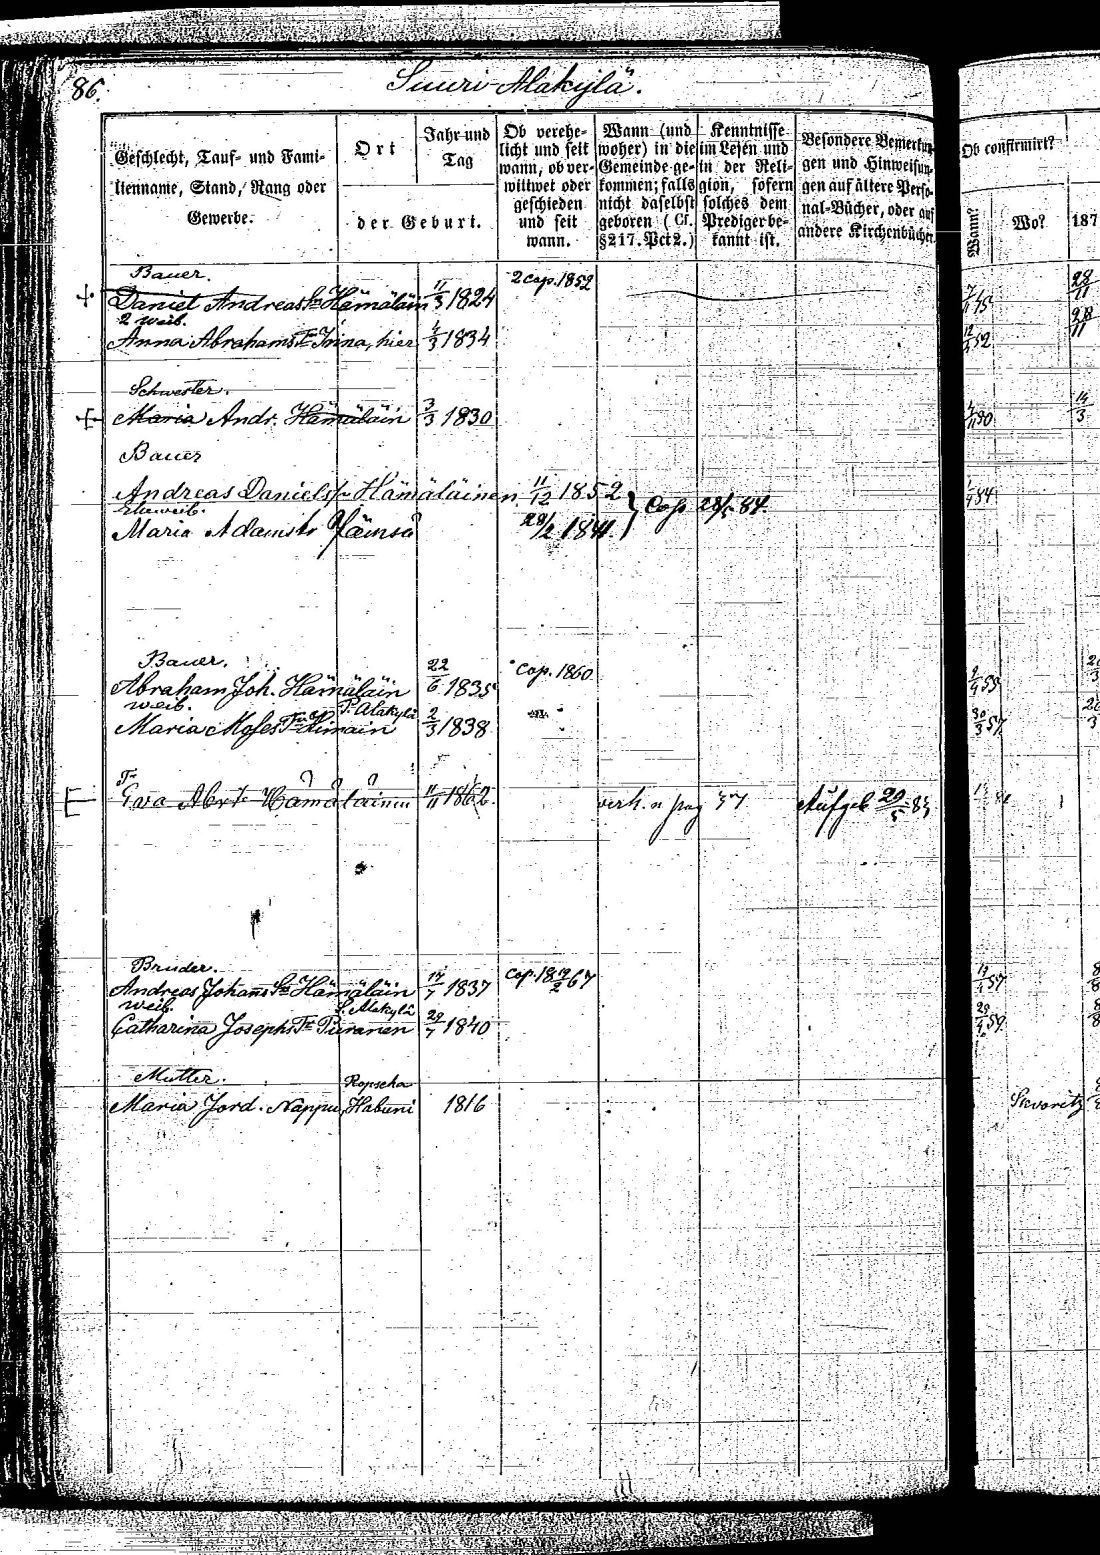 86.
Suuri-Alakylä.
Geschlecht, Tauf- und Fami-
lienname, Stand, Rang oder
Gewerbe.
Ort
der Geburt.
Jahr und
Tag
Ob verehe-
licht und seit
wann, ob ver-
wittwet oder
geschieden
und seit
wann.
Wann (und
woher) in die
Gemeinde ge-
kommen; falls
nicht daselbst
geboren (Cf.
§217. Pct 2.)
Kenntnisse
im Lesen und
in der Reli-
gion, sofern
solches dem
Prediger be-
kannt ist.
Besondere Bemerkun-
gen und Hinweisun-
gen auf ältere Perso-
nal-Bücher, oder auf
andere Kirchenbücher
Ob confirmirt?
Wann?
Wo?
187
Bauer.
Daniel Andreas Sn Hämäläin 11/3 1824 2 cap. 1852 28/11
2 weib.
Anna Abrahams Tr Irina, hier 4/3 1834 52 28/11
Schwester.
Maria Andr. Hämäläin 3/3 1830 14/3
Bauer
Andreas Daniels Hämäläinen 11/12 1852
Eheweib. Cop 84
Maria Adamstr 28/2 1841
Bauer.
Abraham Joh. Hämäläin 22/6 1835 cop. 1860
weib. Alakylä
Maria Moses Tr 2/3 1838 30/3 57
Tr
Eva Abr Tr Hämäläinen 11/11 1862 verh. n pag Aufgeb 20/5 83
Bruder.
Andreas Johanns Sn Hämäläin 17/7 1837 cop. 18 67 57
weib. S. Alakylä
Catharina Josephs Tr Piiranen 29/7 1840 59
Mutter. Ropscha
Maria Jord. Nappu, Habuni 1816 Skworitz